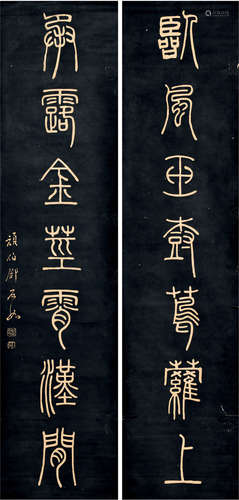 臨風玉樹蔦蘿上
承露金莖霄漢間
頑伯鄧石如